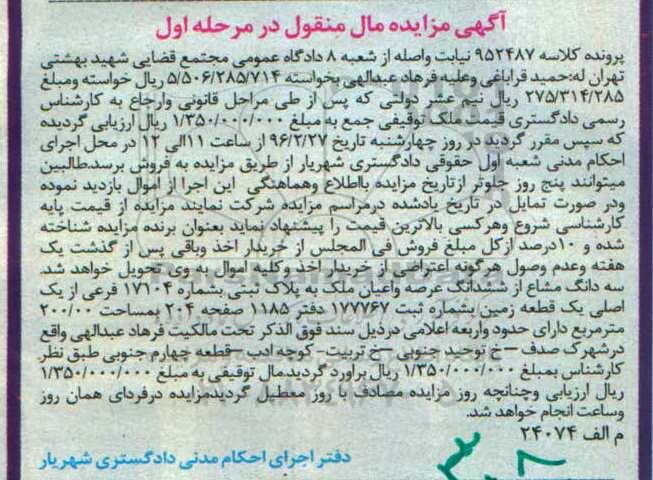 آگهی مزایده مال منقول در مرحله اول
پرونده کلاسه ۹۵۲۴۸۷ نیابت واصله از شعبه ۸ دادگاه عمومی مجتمع قضایی شهید بهشتی
تهران له:حمید قراباغی وعلیه فرهاد عبدالهی بخواسته ۵/۵۰۶/۲۸۵/۷۱۴ ریال خواسته ومبلغ
۲۷۵/۳۱۴/۲۸۵ ریال نیم عشر دولتی که پس از طی مراحل قانونی وارجاع به کارشناس
رسمی دادگستری قیمت ملک توقیفی جمع به مبلغ ۱/۳۵۰/۰۰۰/۰۰۰ ریال ارزیابی گردیده
که سپس مقرر گردید در روز چهارشنبه تاریخ ۹۶/۲/۲۷ از ساعت ۱۱الی ۱۲ در محل اجرای
احکام مدنی شعبه اول حقوقی دادگستری شهریار از طریق مزایده به فروش برسد.طالبین
میتوانند پنج روز جلوتر ازتاریخ مزایده بااطلاع وهماهنگی این اجرا از اموال بازدید نموده
ودر صورت تمایل در تاریخ یادشده درمراسم مزایده شرکت نمایند مزایده از قیمت پایه
کارشناسی شروع وهرکسی بالاترین قیمت را پیشنهاد نماید بعنوان برنده مزایده شناخته
شده و ۱۰درصد ازکل مبلغ فروش فی المجلس از خریدار اخذ وباقی پس از گذشت یک
هفته وعدم وصول هرگونه اعتراضی از خریدار اخذ وکلیه اموال به وی تحویل خواهد شد.
سه دانگ مشاع از ششدانگ عرصه واعیان ملک به پلاک ثبتی بشماره ۱۷۱۰۴ فرعی از یک
اصلی یک قطعه زمین بشماره ثبت ۱۷۷۷۶۷ دفتر ۱۱۸۵ صفحه ۲۰۴ بمساحت ۲۰۰/۰۰
مترمربع دارای حدود واربعه اعلامی درذیل سند فوق الذکر تحت مالکیت فرهاد عبدالهی واقع
درشهرک صدف –خ توحید جنوبی –خ تربیت- کوچه ادب –قطعه چهارم جنوبی طبق نظر
کارشناس بمبلغ ۱/۳۵۰/۰۰۰/۰۰۰ ریال براورد گردید.مال توقیفی به مبلغ ۱/۳۵۰/۰۰۰/۰۰۰
ریال ارزیابی وچنانچه روز مزایده مصادف با روز معطیل گردیدمزایده درفردای همان روز
وساعت انجام خواهد شد.
م الف ۲۴۰۷۴
دفتر اجرای احکام مدنی دادگستری شهریار